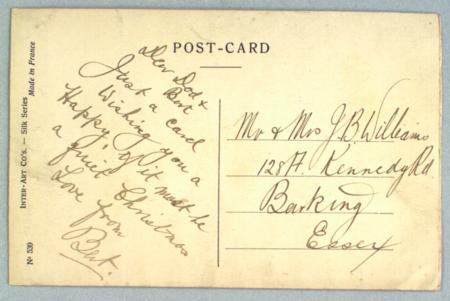 POST-CARD
Dear Dod &
Bert
Just a card
Wishing you a
Happy, if it must be
a quiet Christmas
Love from
Bert.
Mr & Mrs J. B. Williams
128A. Kennedy Rd
Barking
Essex
INTER-ART CO'S. — SILK SERIES
Made in France
No 530